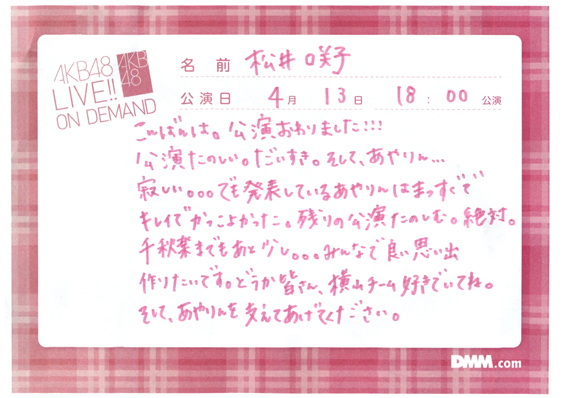 AKB48
LIVE!!
ON DEMAND
AKB
48
名 前 松井咲子
公演日 4月 13日 18:00 公演
こんばんは。公演おわりました!!!
公演たのしい。だいすき。そして、あやりん...
寂しい。。。でも発表しているあやりんはまっすぐで
キレイでかっこよかった。残りの公演たのしむ。絶対。
千秋楽までもあと少し。。。みんなで良い思い出
作りたいです。どうか皆さん、横山チーム好きでいてね。
そして、あやりんを支えてあげてください。
DMM.com